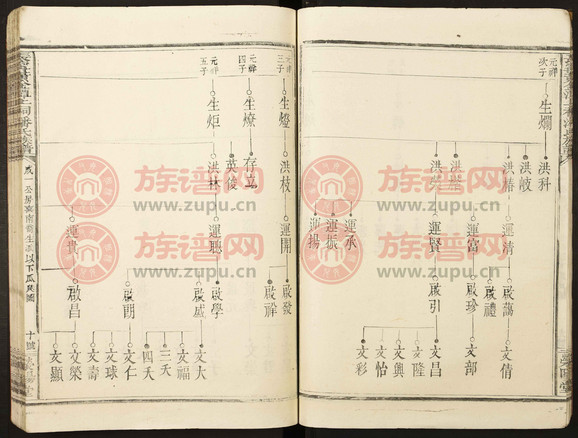 元祥次子
生爛
洪科
洪岐
洪椿
洪榮
運清
運富
運賢
運承
運揚
啟萬
啟禮
啟珍
啟引
文倩
文部
文昌
文隆
文興
文怡
文彩
元祥三子
元祥四子
元祥五子
生燈
生燎
生炬
洪枝
存立
英俊
洪林
運開
運聰
運貴
啟發
啟祥
啟學
啟威
啟明
啟昌
文大
文福
三夭
四夭
文仁
文球
文壽
文榮
文顯
十號
族谱网
www.zupu.cn
族谱网
www.zupu.cn
族谱网
www.zupu.cn
族谱网
www.zupu.cn